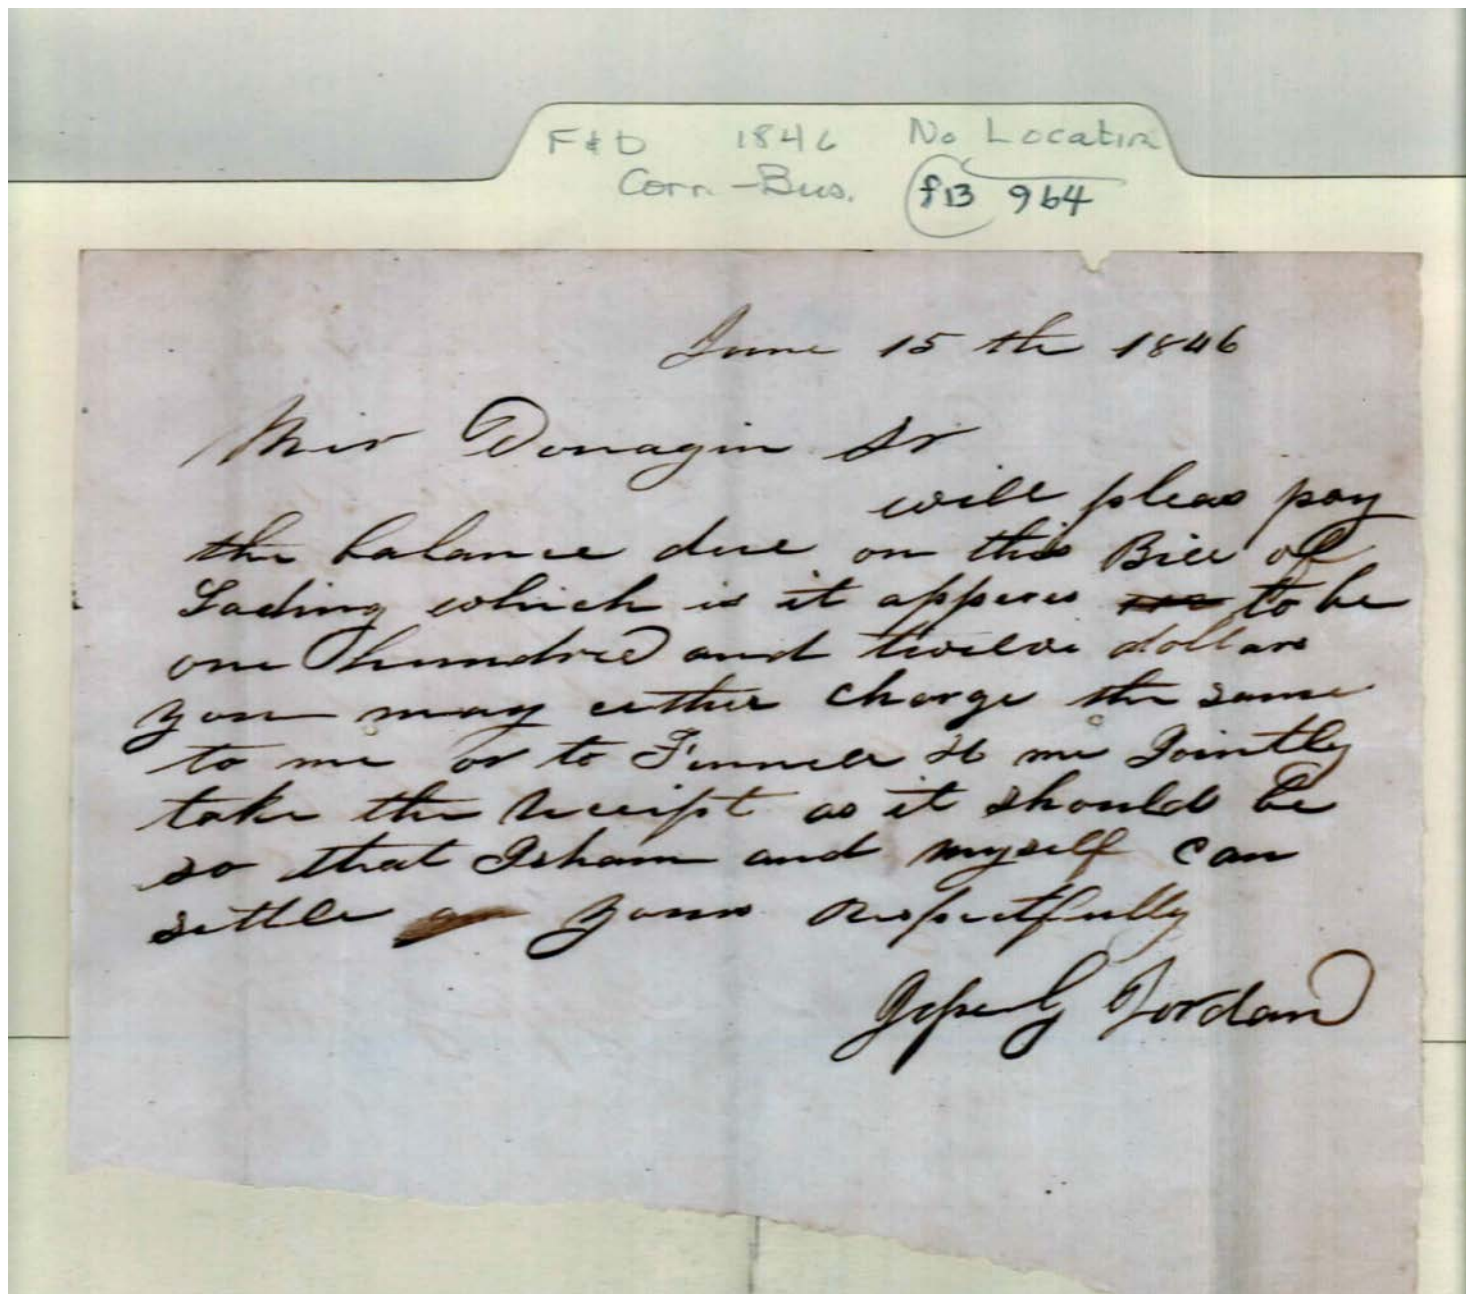 F & D 1846 No Location
Corr.-Bus. f13 964
June 15 th 1846
Mir Donagin Sr
will pleas pay
the balance due on this Bill of
Lading which is it apperes to be
one hundred and twelve dollars
you may either charge the same
to me or to & me Jointly
take the Receipt as it should be
so that Isham and myself can
settle yours Respectfully
G Jordan